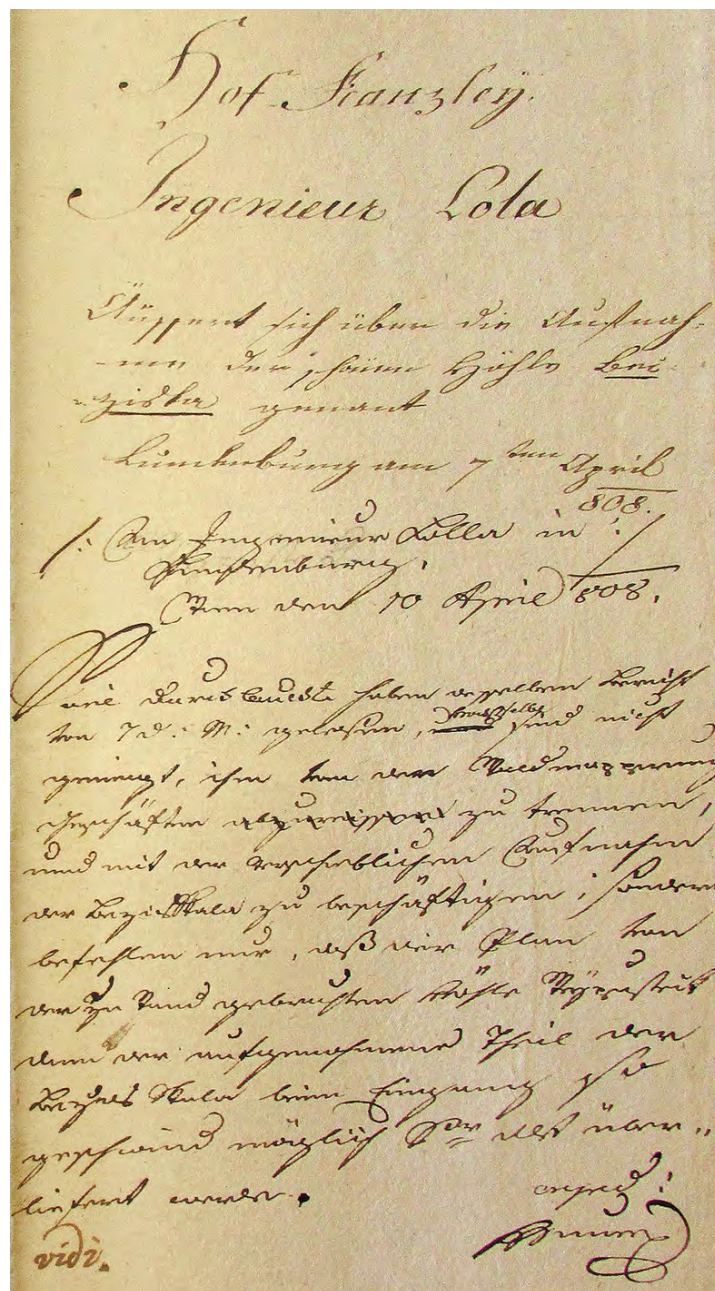 Hof Kanzley.
Ingenieur Lola
Äüssert sich über die Aufnah-
me der schönen Höhle Bei-
ziskla genant
Lundenburg am 7ten April
808.
/: An Ingenieur Lolla in :/
Lundenburg.
Wien den 10 April 808.
Seine Durchlaucht haben desselben Bericht
von 7 d: M: gelesen, Hochselbe sind nicht
geneigt, ihn von den Waldmappirung
Geschäften abzureissen zu trennen,
und mit der Aufnahm
der zu beschäftigen; sondern
befehlen nur, daß der Plan von
der zu Stand gebrachten Höhle
dann der aufgenohmene Theil der
Skala beim Eingang so
geschwind möglich Sr überˮ
liefert werde.
exped:
vidi.